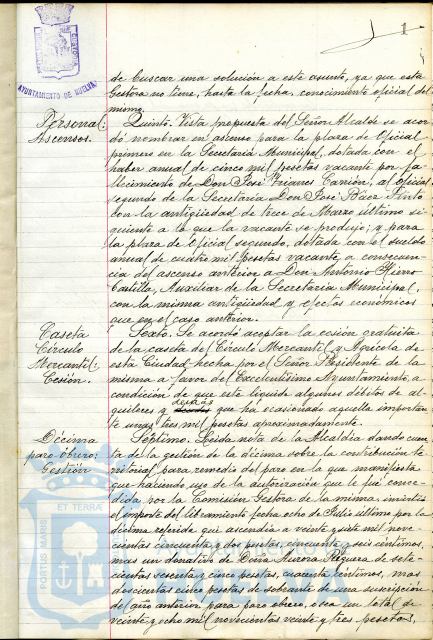 1
AYUNTAMIENTO DE HUELVA
de buscar una solución a este asunto, ya que esta
Gestora no tiene, hasta la fecha, conocimiento oficial del
mismo.
Personal:
Ascensos.
Quinto. Vista propuesta del Señor Alcalde se acor
dó nombrar en ascenso para la plaza de Oficial
primero en la Secretaría Municipal, dotada con el
haber anual de cinco mil pesetas vacante por fa
llecimiento de Don José Frianes Carrión, al oficial
segundo de la Secretaría Don José Báez Pinto
con la antigüedad de trece de Marzo último si
guiente a lo que la vacante se produjo; y para
la plaza de Oficial segundo, dotada con el sueldo
anual de cuatro mil pesetas vacante, a consecuen
cia del ascenso anterior a Don Antonio Fierro
Castilla, Auxiliar de la Secretaría Municipal,
con la misma antigüedad y efectos económicos
que en el caso anterior.
Caseta
Círculo
Mercantil:
Cesión.
Sexto. Se acordó aceptar la cesión gratuita
de la caseta del Círculo Mercantil y Agrícola de
esta Ciudad hecha por el Señor Presidente de la
misma a favor del Excelentísimo Ayuntamiento, a
condición de que este liquide algunos débitos de al
quileres y demás que ha ocasionado aquella importan
te unas tres mil pesetas aproximadamente.
Décima
paro obrero:
Gestión
Séptimo. Leida nota de la Alcaldía dando cuen
ta de la gestión de la décima sobre la contribución te
rritorial para remedio del paro en la que manifiesta
que haciendo uso de la autorización que le fué conce
dida por la Comisión Gestora de la misma invirtió
el importe del libramiento fecha ocho de Julio último por la
décima referida que ascendía a veinte y siete mil nove
cientas cincuenta y dos pesetas, cincuenta y seis céntimos,
mas un donativo de Doña Aurora Reguera de sete
cientas sesenta y cinco pesetas, cuarenta céntimos, mas
doscientas cinco pesetas de sobrante de una suscripción
del año anterior para paro obrero, o sea un total de
veinte y ocho mil novecientas veinte y tres pesetas,
PORTUS MARIS ET TERRAE